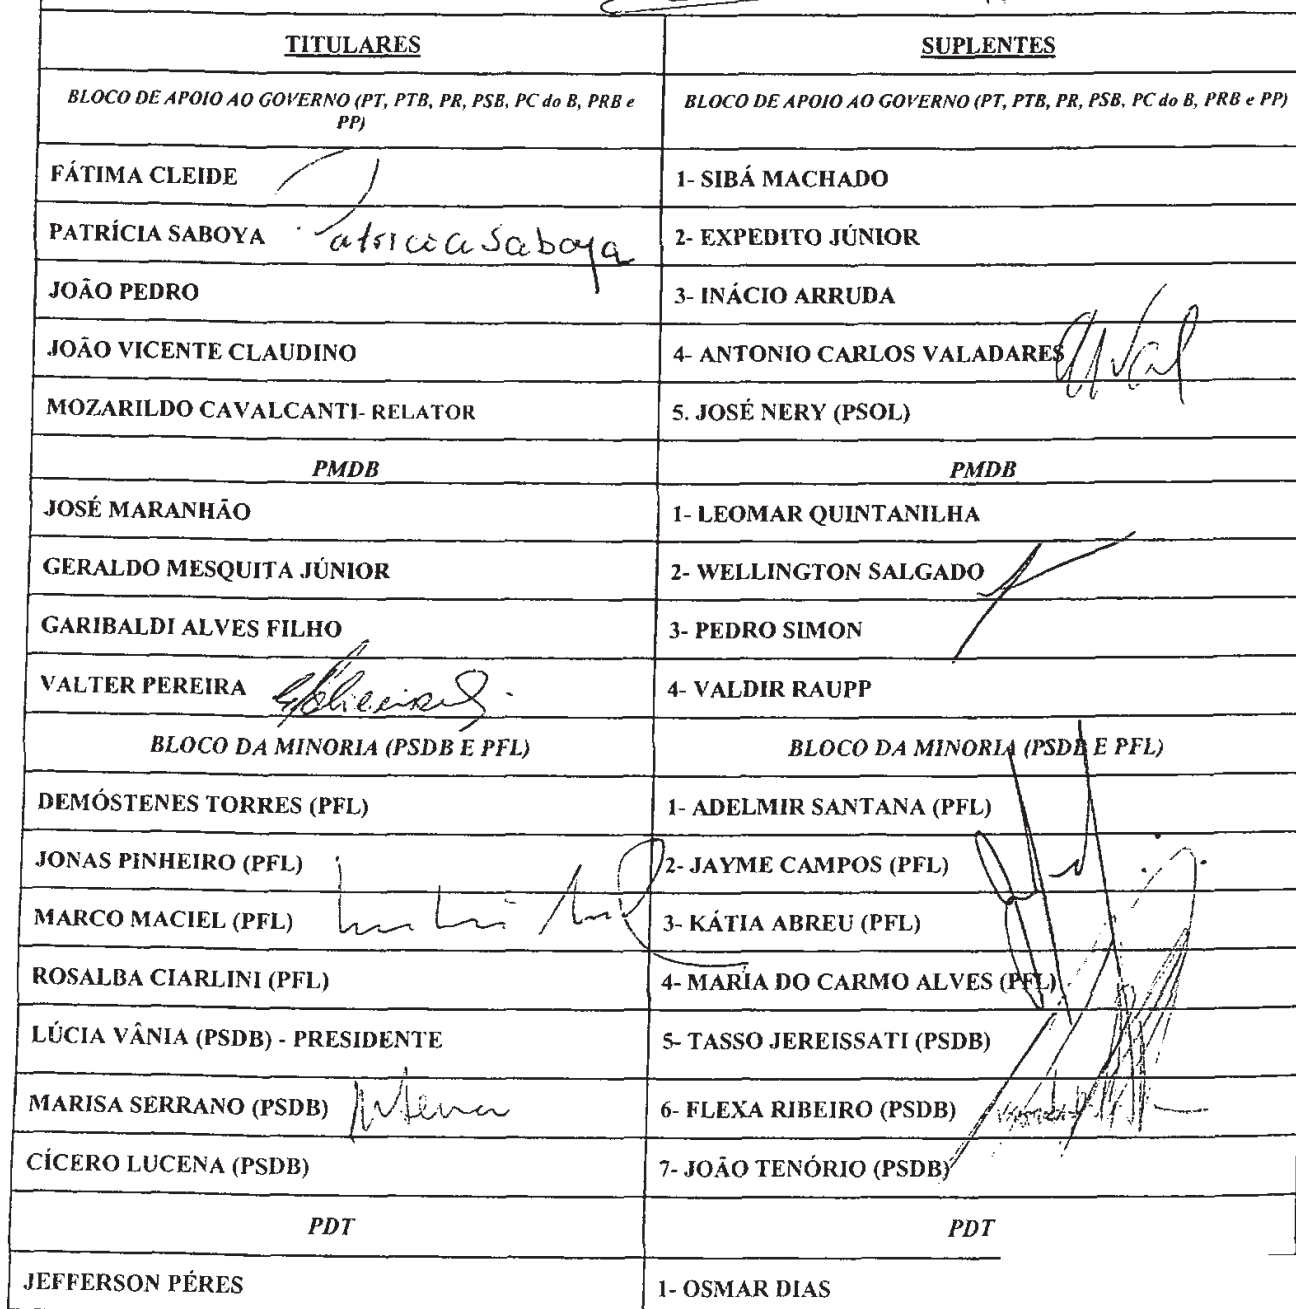 TITULARES
SUPLENTES
BLOCO DE APOIO AO GOVERNO (PT, PTB, PR, PSB, PC do B, PRB e
PP)
BLOCO DE APOIO AO GOVERNO (PT, PTB, PR, PSB, PC do B, PRB e PP)
FÁTIMA CLEIDE
1- SIBÁ MACHADO
PATRÍCIA SABOYA Patricia Saboya
2- EXPEDITO JÚNIOR
JOÃO PEDRO
3- INÁCIO ARRUDA
JOÃO VICENTE CLAUDINO
4- ANTONIO CARLOS VALADARES
MOZARILDO CAVALCANTI- RELATOR
5. JOSÉ NERY (PSOL)
PMDB
PMDB
JOSÉ MARANHÃO
1- LEOMAR QUINTANILHA
GERALDO MESQUITA JÚNIOR
2- WELLINGTON SALGADO
GARIBALDI ALVES FILHO
3- PEDRO SIMON
VALTER PEREIRA
4- VALDIR RAUPP
BLOCO DA MINORIA (PSDB E PFL)
BLOCO DA MINORIA (PSDB E PFL)
DEMÓSTENES TORRES (PFL)
1- ADELMIR SANTANA (PFL)
JONAS PINHEIRO (PFL)
2- JAYME CAMPOS (PFL)
MARCO MACIEL (PFL)
3- KÁTIA ABREU (PFL)
ROSALBA CIARLINI (PFL)
4- MARIA DO CARMO ALVES (PFL)
LÚCIA VÂNIA (PSDB) - PRESIDENTE
5- TASSO JEREISSATI (PSDB)
MARISA SERRANO (PSDB)
6- FLEXA RIBEIRO (PSDB)
CÍCERO LUCENA (PSDB)
7- JOÃO TENÓRIO (PSDB)
PDT
PDT
JEFFERSON PÉRES
1- OSMAR DIAS